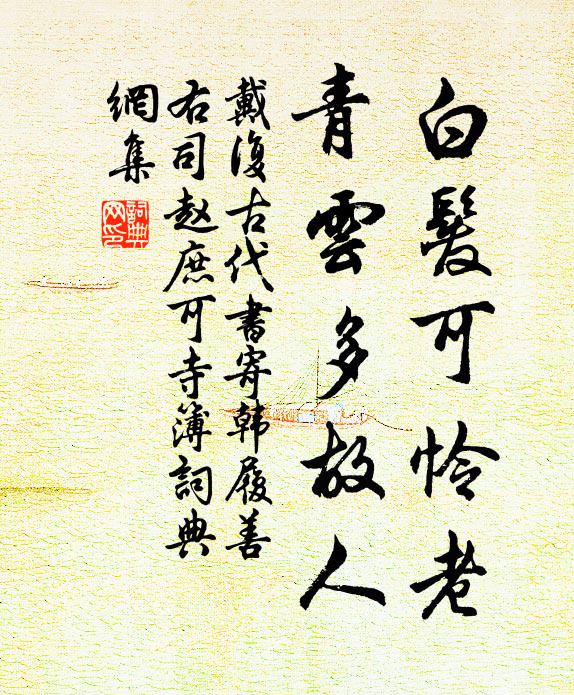 白髮可憐老
青雲多故人
戴復古代書寄韩履善
右司赵庶可寺簿詞典
網集
詞典网印